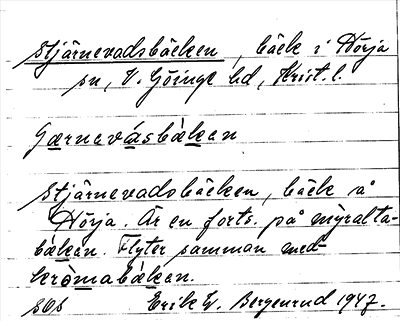 Stjärnevadsbäcken, bäck i Hörja
sn, V. Göinge hd, Krist. l.
Gærnevásbæken
Stjärnevadsbäcken, bäck å
Hörja. Är en forts. på myralta-
bæken. Flyter samman med
kròmabæken.
sOs Erik W. Bergenrud 1947.